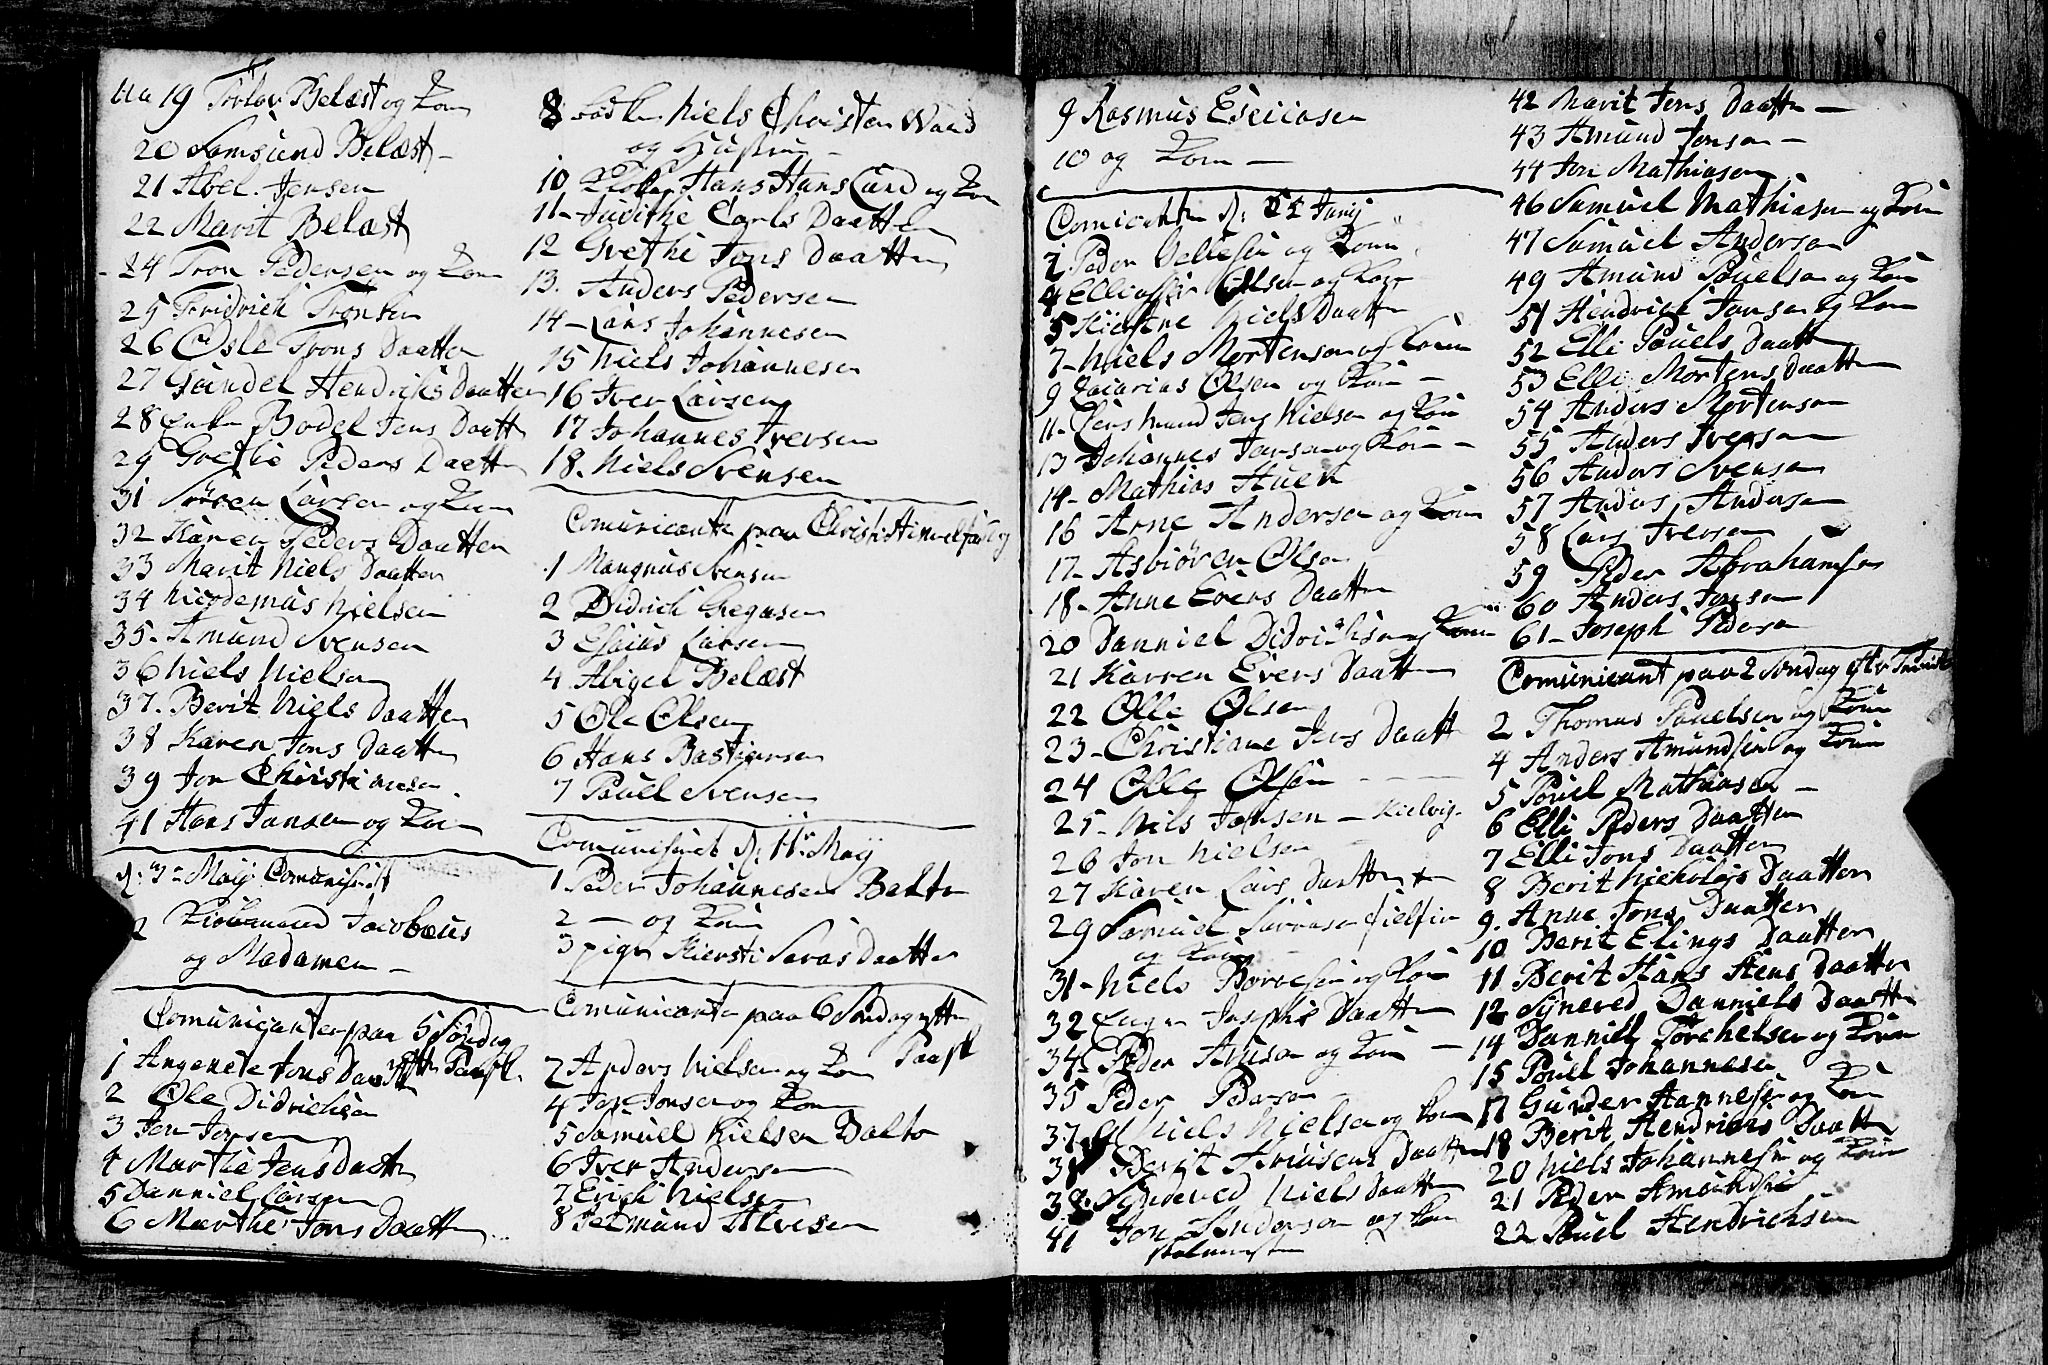 19 Belæst og Kone
20 Samsund Belæst -
21 Abel Jensen
22 Marit Belæst
24 Tron Pedersen og Kone
25 Fridrich Tronsen
26 Osle Trons Daatter
27 Gundel Hendrichs Daatter
28 Enke Bodel Jens Daatt
29 Grethe Peders Daatter
31 Sören Larsen og Kone
32 Karen Peders Daatter
33 Marit Niels Daatter
34 Nicodemus Nielsen
35 - Amund Svensen
36 Niels Nielsen
37. Berit Niels Daatter
38 Karen Jons Daatter
39 Jon Christiansen
41 Hans Jansen og Kone
d: 3 Maij
2 Jacobæus
og Madamen -
Comunicanter paa 5 Söndag
efter Paask
1 Angenete Jons Daatter
2 Ole Didrichsen
3 Jon Jonsen
4 Marthe Jens Daatter
5 Danniel Larsen
6 Marthe Jons Daatter
8 Niels Christen
og Hustru -
10 Klokker Hans Hans Lund og Kone
11 - Judithe Carls Daatter
12 Grethe Jons Daatter
13. Anders Pedersen
14 - Lars Johannesen
15 Niels Johannesen
16 Iver Larsen
17 Johannes Iversen
18. Niels Svensen
Comunicanter paa Christi Himmelfart
1 Mangnus Svensen
2 Didrich Gregusen
3 Esaias Larsen
4 Abigel Belæst
5 Ole Olsen
6 Hans Bastiansen
7 Pouel Svensen
d: 11 Maij
1 Peder Johannesen Balto
2 - og Kone
3 pige Kiersti Saras Daatter
Comunicanter paa 6 Söndag efter
Paask
2 Anders Nielsen og Kone
4 Jon Jonsen og Kone
5 Samuel Nielsen Dalto
6 Iver Andersen
7 Erich Nielsen
8
9 Rasmus
10 og Kone -
d: Junij
2 Peder og Kone
4 Olsen og Kone
5 Kierstne Niels Daatter
7 - Niels Mortensen og Kone
9 Zacarias Olsen og Kone -
11 - Jens Nielsen og Kone
13 Johannes Jansen og Kone -
14 - Mathias
16 Arne Andersen og Kone
17 - Asbiören Olsen
18 - Anne Evers Daatter
20 Danniel Didrichsen og Kone
21 Karren Evers Daatter
22 Olle Olsen
23 - Christiane Jens Daatt
24 Olle Olsen - - -
25 - Nils Jansen - Kielvig
26 Jon Nielsen
27 Karen Lars Daatter
29 Samuel
og Kone -
31 - Niels og Kone
32 Josephs Daatter
34 - Peder og Kone -
35 Peder Pedersen
37 - Niels Nielsen og Kone
Berit Daatter
Niels Daatter
41 Jon Andersen og Kone
42 Marit Jens Daatter -
43 Amund Jonsen -
44 Jon Mathiasen
46 Samuel Mathiasen og Kone
47 Samuel Andersen
49 Amund Pouelsen og Kone
51 Hendrick Jansen og Kone
52 Elli Pouels Daatt
53 Elli Mortens Daatter
54 Anders Mortensen
55 Anders Iversen
56 Anders Svensen
57 Anders Andersen
58 Lars Iversen
59 Peder Abrahamsen
60 Anders Jonsen
61 - Joseph Pedersen
Comunicant paa 2 Söndag efter
2 Thomas Pouelsen og Kone
4 Anders Amundsen og Kone
5 Pouel Mathiasen -
6 Elli Peders Daatter
7 Elli Jons Daatter
8 Berit Daatter
9. Anne Jons Daatter
10 Berit Elings Daatter
11 Berit Hans Daatter
12 Synneved Danniels Daatter
14 Danniel Törchelsen og Kone
15 Pouel Johannesen
17 Gunder Hannesen og Kone
18 Berit Hendrichs Daatt
20 Niels Johannesen og Kone
21 Peder Amundsen
22 Pouel Hendrichsen